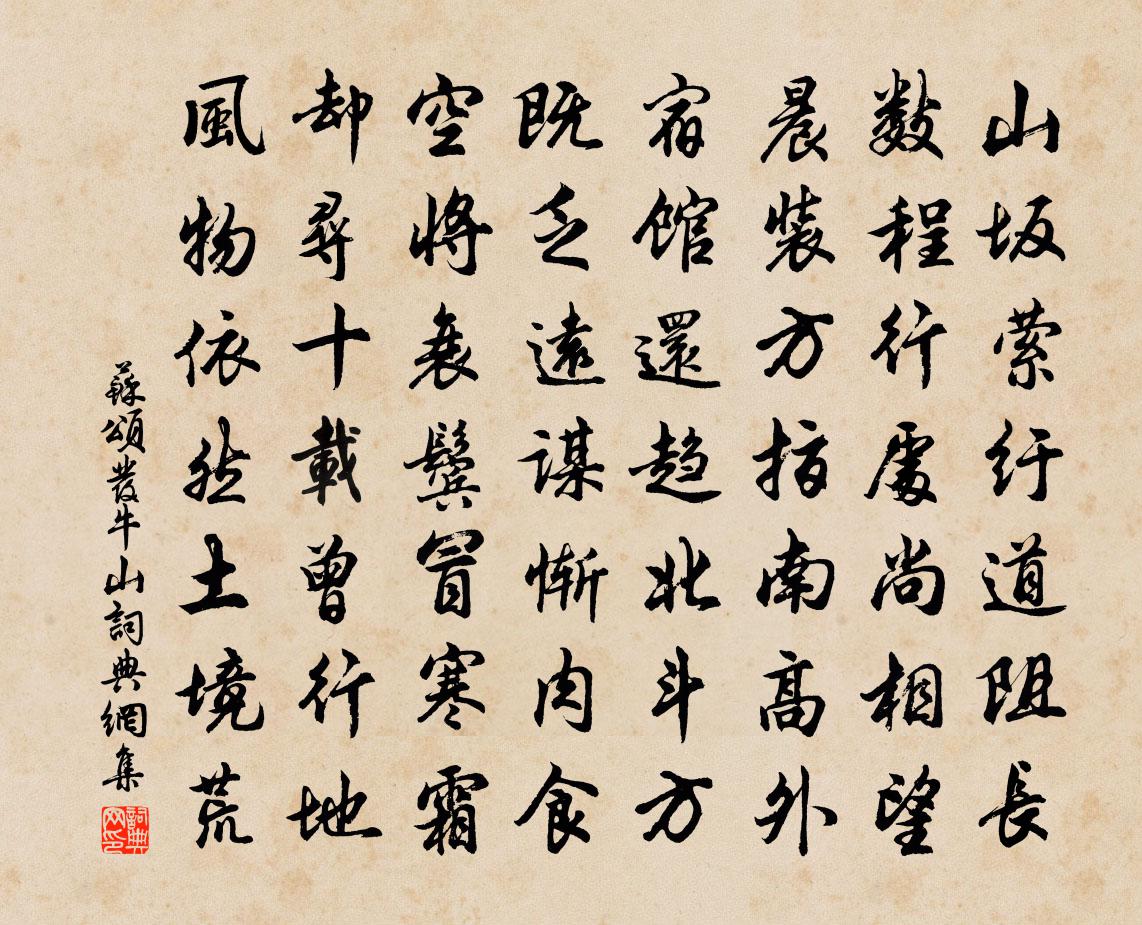 山坂萦纡道阻長
數程行處尚相望
晨裝方指南高外
宿館還趋北斗方
既乏遠謀慚肉食
空將衰鬓冒寒霜
却尋十載曾行地
風物依然土境荒
蘇頌發牛山詞典網集
詞典网印